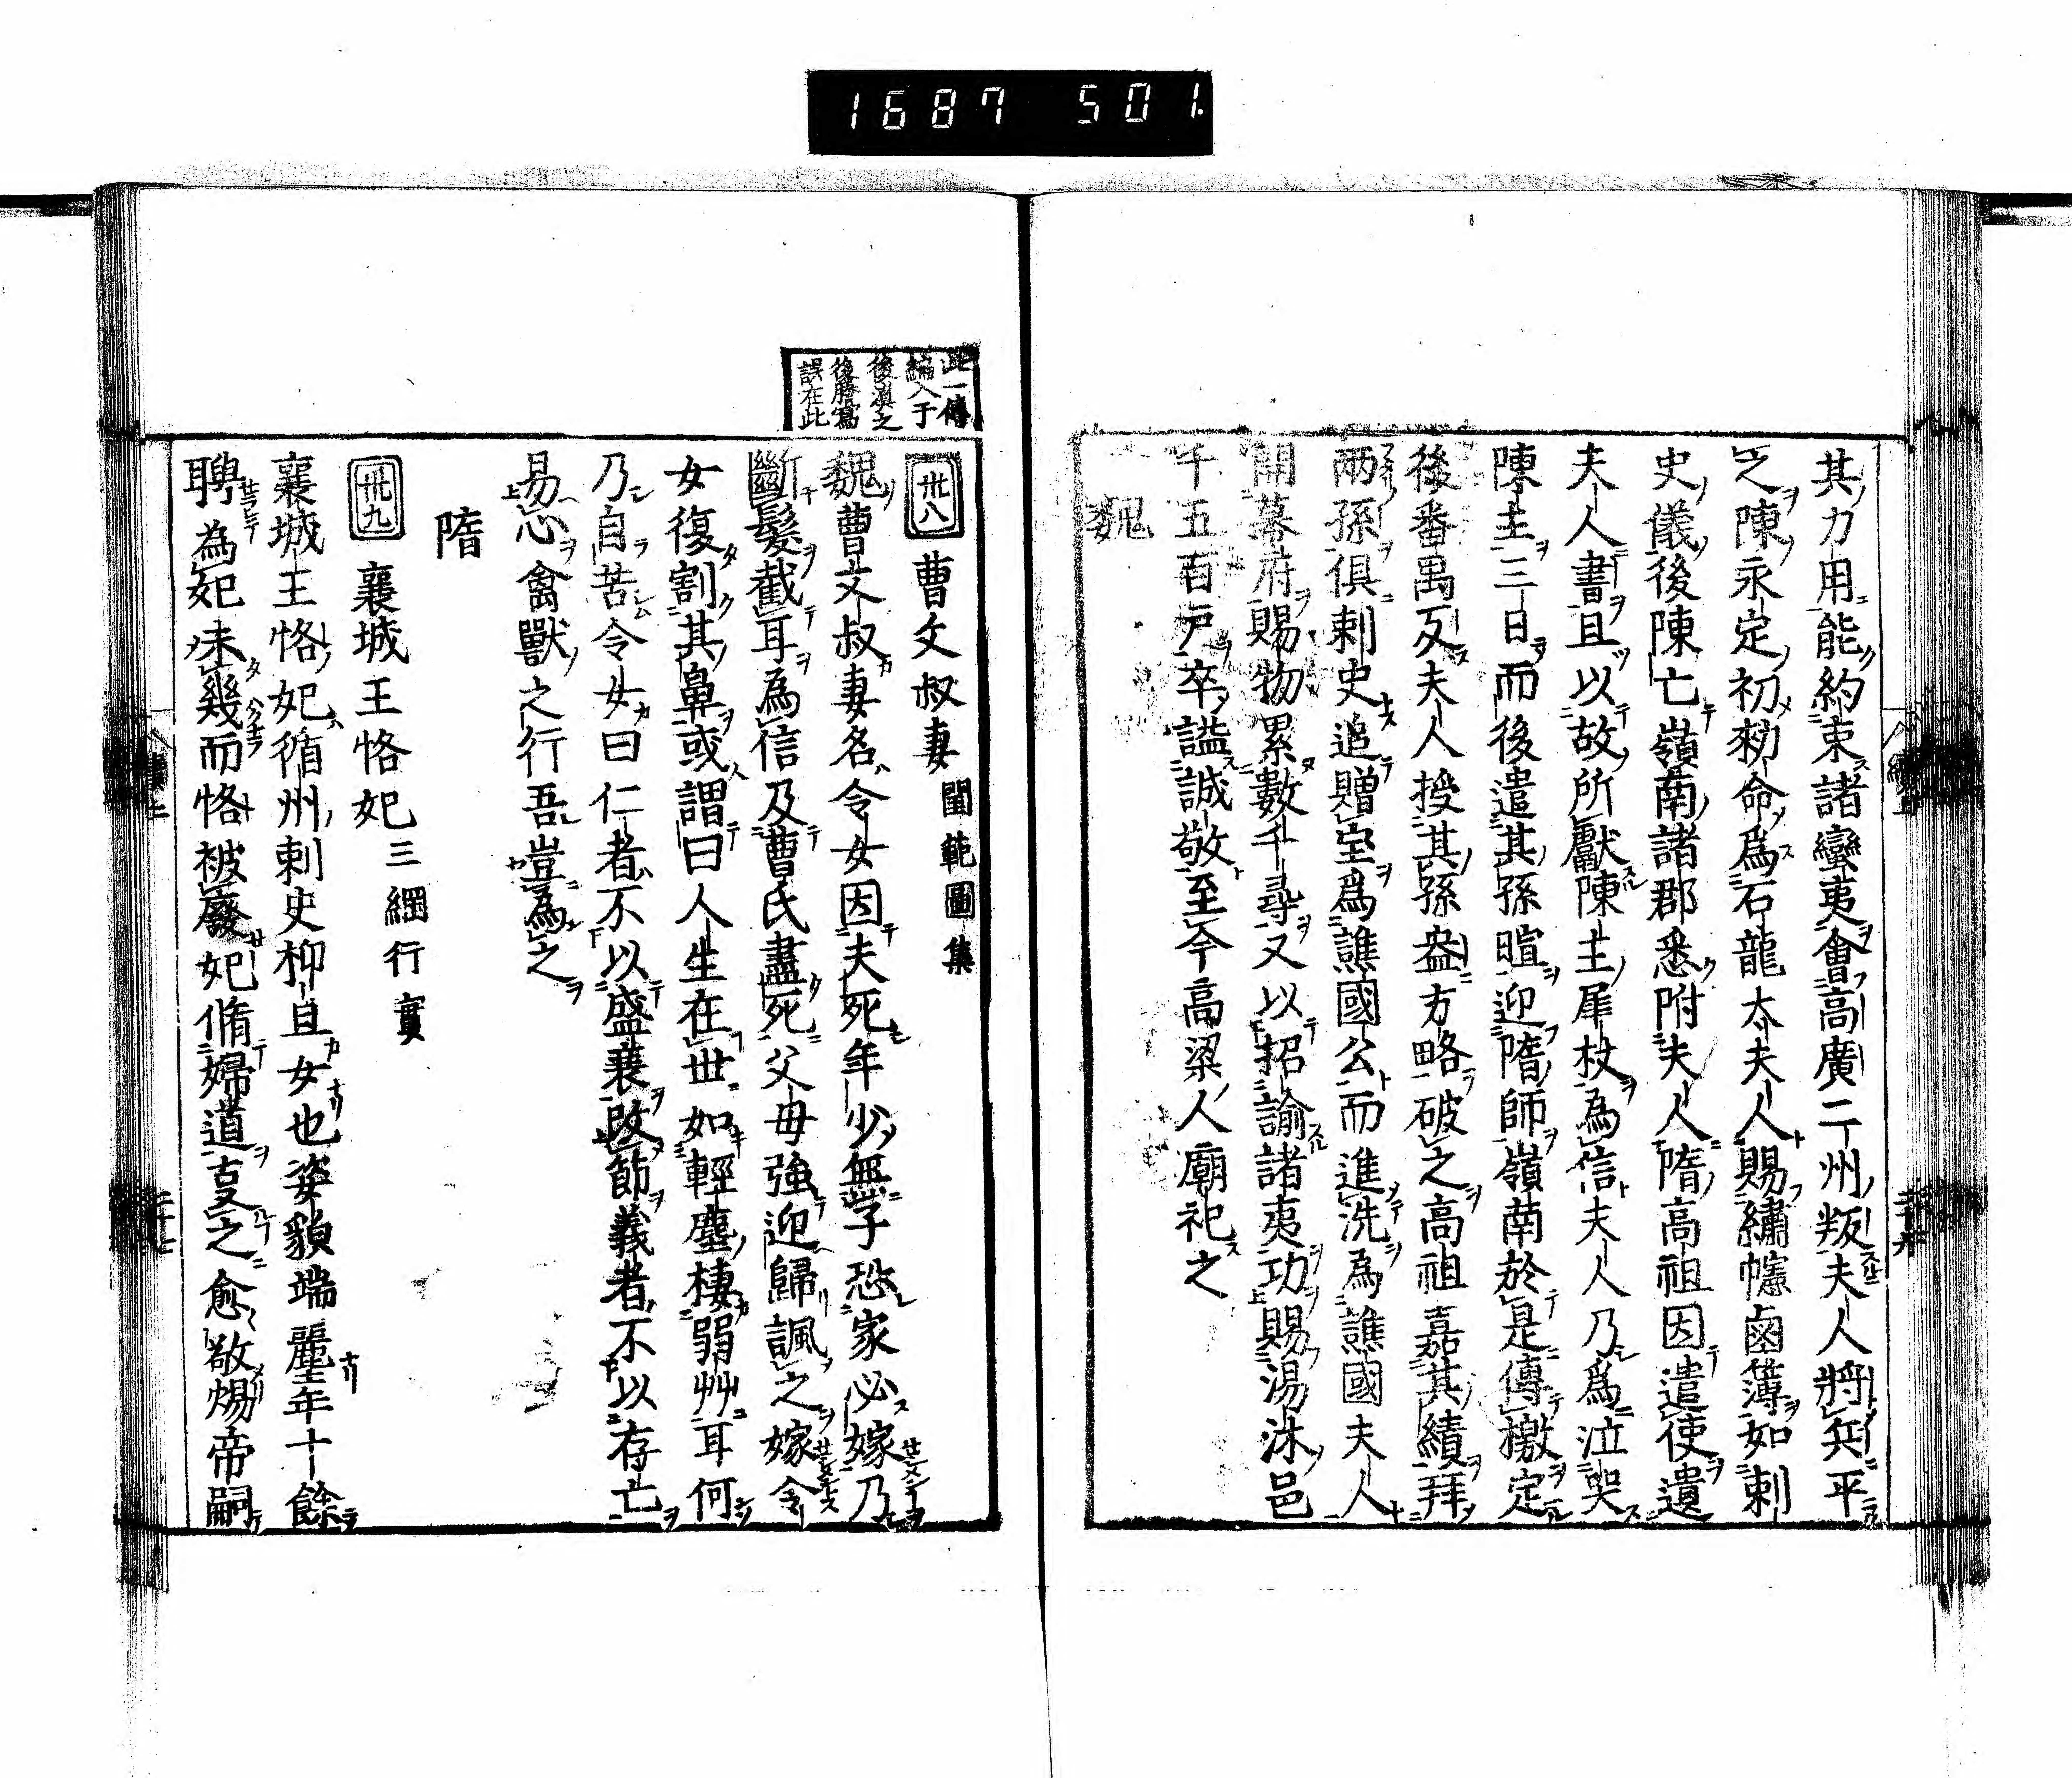 1687 501.
其力用能約束諸蠻夷會高廣二州叛夫人將兵平
之陳永定初勑命爲石龍太夫人賜繡幰鹵簿如刺
史儀後陳亡嶺南諸郡悉附夫人隋高祖因遣使遺
夫人書且以故所獻陳主犀杖為信夫人乃爲泣哭
陳主三日而後遣其孫暄迎隋師嶺南於是傳檄定
後番禺反夫人授其孫盎方略破之高祖嘉其績拜
兩孫俱刺史追贈寶爲譙國公而進洗為譙國夫人
開幕府賜物累數千尋又以招諭諸夷功賜湯沐邑
千五百戸卒謚誠敬至今高梁人廟祀之
魏
此一傳
編入于
後漢之
後謄寫
誤在此
卅八 曹文叔妻 閨範圖集
魏曹文叔妻名令女因夫死年少無子恐家必嫁乃
斷髮截耳爲信及曹氏盡死父母強迎歸諷之嫁令
女復割其鼻或謂曰人生在世如輕塵棲弱艸耳何
乃自苦令女曰仁者不以盛衰改節義者不以存亡
易心禽獸之行吾豈為之
隋
卅九 襄城王恪妃 三綱行實
襄城王恪妃循州刺史柳旦女也姿貌端麗年十餘
聘為妃未幾而恪被廢妃脩婦道亙之愈敬煬帝嗣